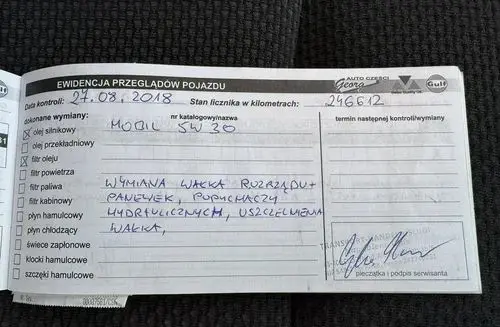 EWIDENCJA PRZEGLĄDÓW POJAZDU
AUTO CZĘŚCI
Georg
Gulf
Data kontroli: 27.08.2018 Stan licznika w kilometrach: 246612
dokonane wymiany: nr katalogowy/nazwa termin następnej kontroli/wymiany
olej silnikowy MOBIL 5W30
olej przekładniowy
filtr oleju
filtr powietrza
filtr paliwa WYMIANA WAŁKA ROZRZĄDU+
filtr kabinowy PANEWEK, POPYCHACZY
płyn hamulcowy HYDRAULICZNYCH, USZCZELNIENIA
płyn chłodzący WAŁKA,
świece zapłonowe
klocki hamulcowe
szczęki hamulcowe
pieczątka i podpis serwisanta